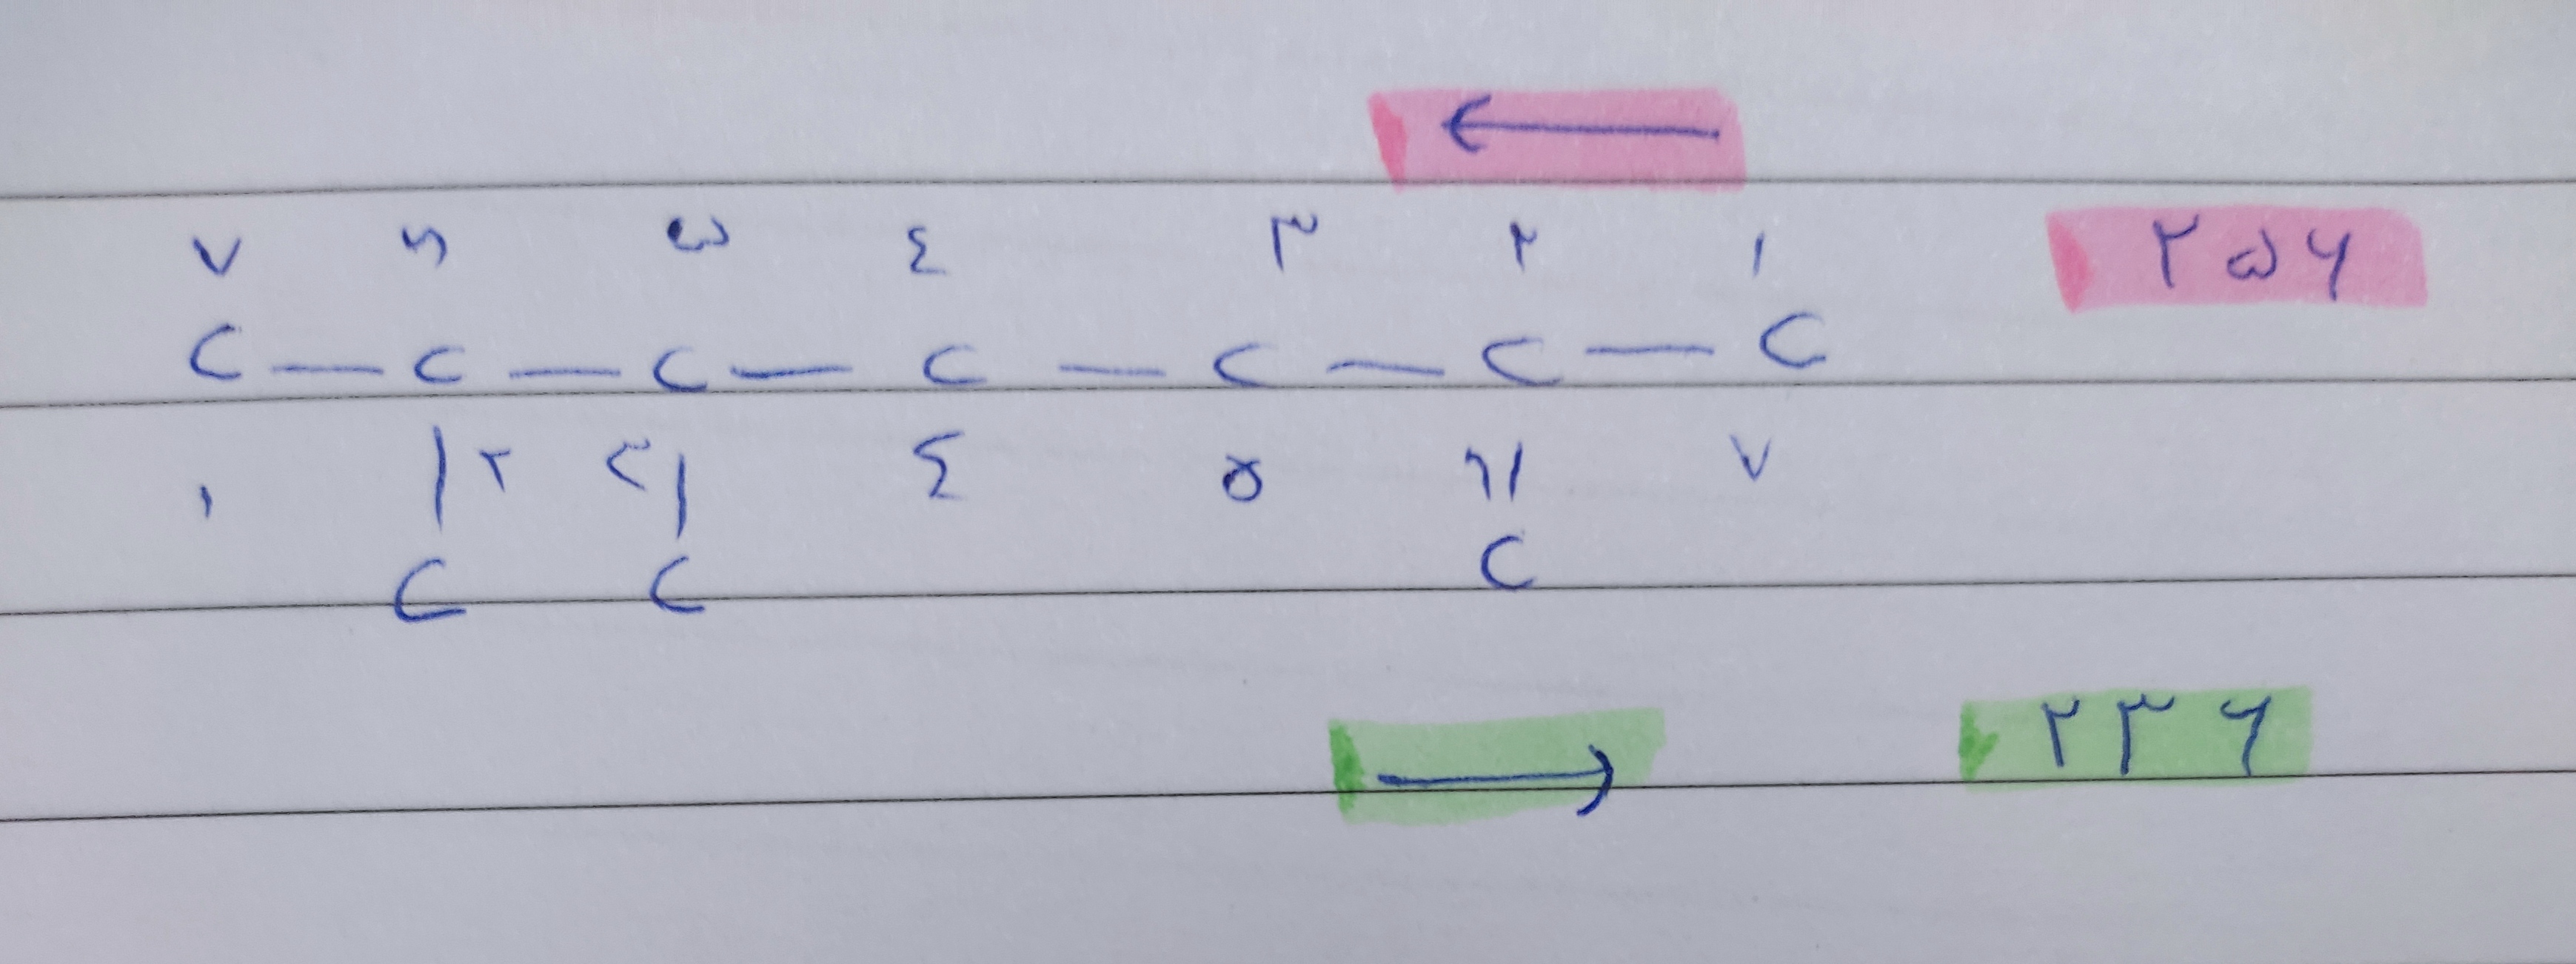 ←
۷ ۶ ۵ ۴ ۳ ۲ ۱ ۲۵۶
C — C — C — C — C — C — C
۱ | ۲ ۳ | ۴ ۵ ۶ | ۷
C C C
→ ۲۳۶